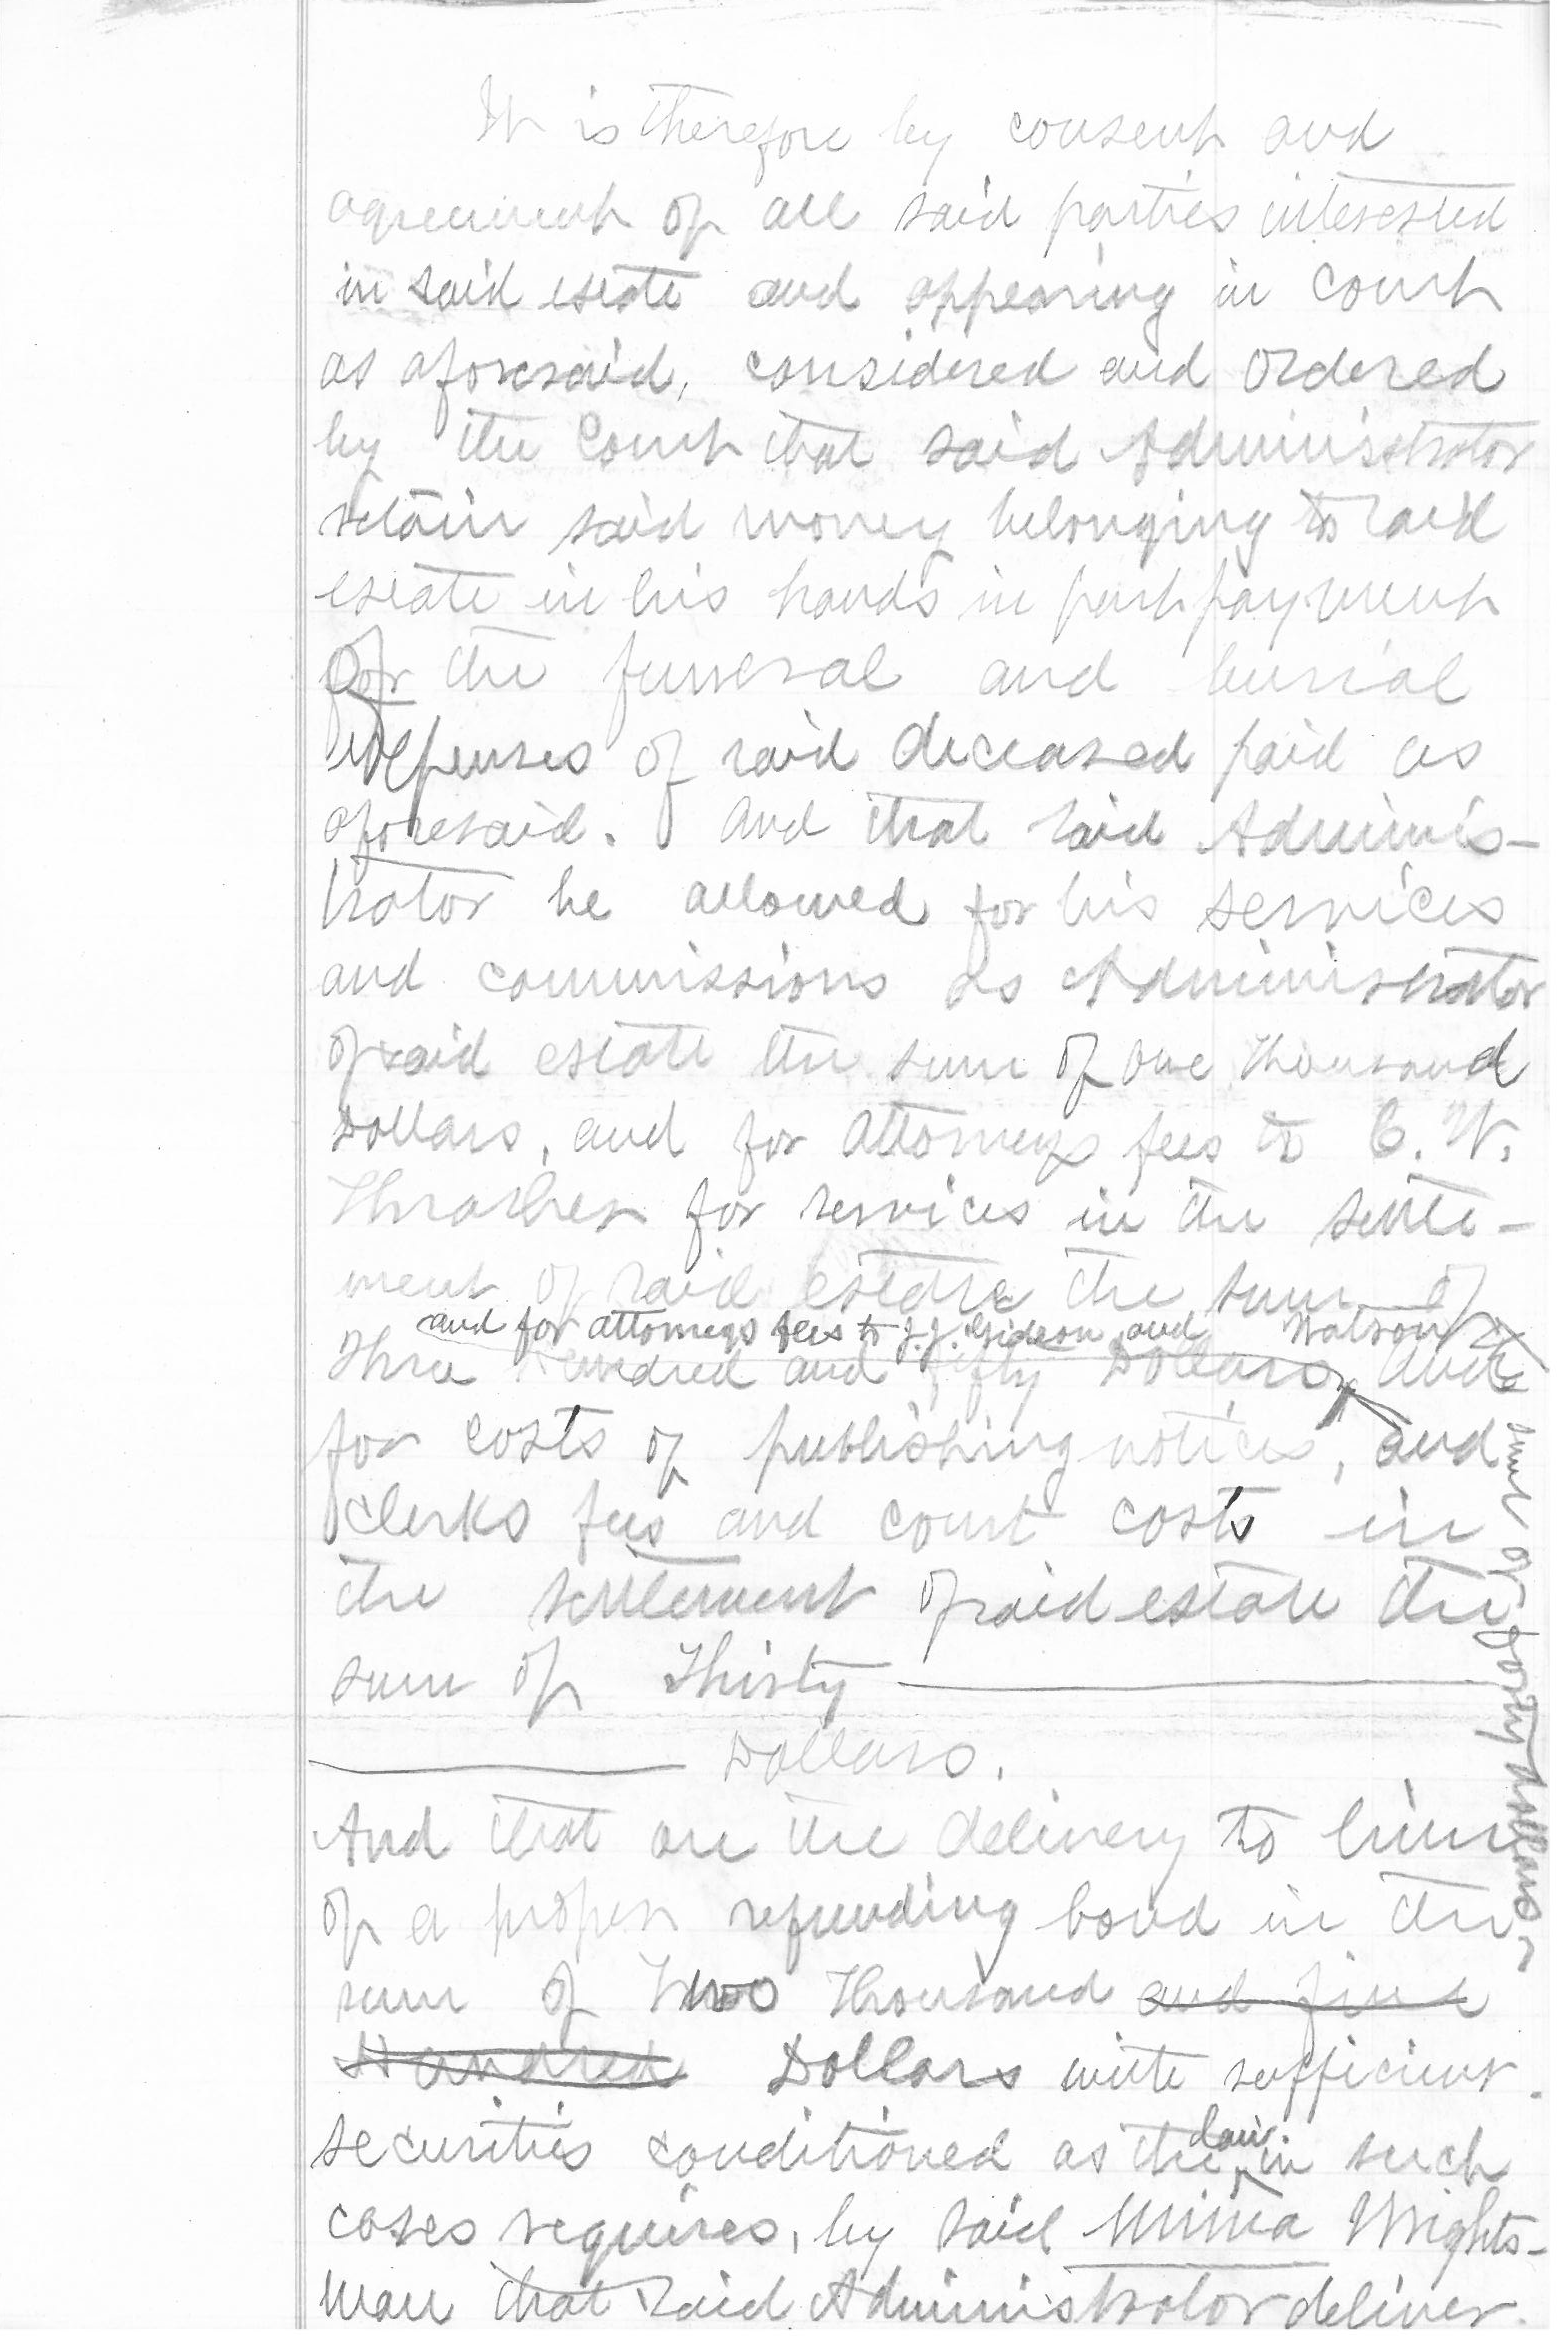 It is therefore by consent and
agreement of all said parties interested
in said estate and appearing in Court
as aforesaid, considered and ordered
by the Court that said Administrator
retain said money belonging to said
estate in his hands in part payment
of the funeral and burial
expenses of said deceased paid as
aforesaid. And that said Adminis-
trator be allowed for his services
and commissions as Administrator
of said estate the sum of one thousand
Dollars, and for attorneys fees to C. W.
Thrasher for services in the settle-
ment of said estate the sum of
and for attorneys fees to J. J. Gideon and Watson
Three hundred and fifty Dollars, and
the sum of Forty Dollars,
for costs of publishing notices, and
clerks fees and court costs in
the settlement of said estate the
sum of Thirty
Dollars.
And that on the delivery to him
of a proper refunding bond in the
sum of Two Thousand and five
Hundred Dollars with sufficient
securities conditioned as the law in such
cases requires, by said Minna Wrights-
man that said Administrator deliver